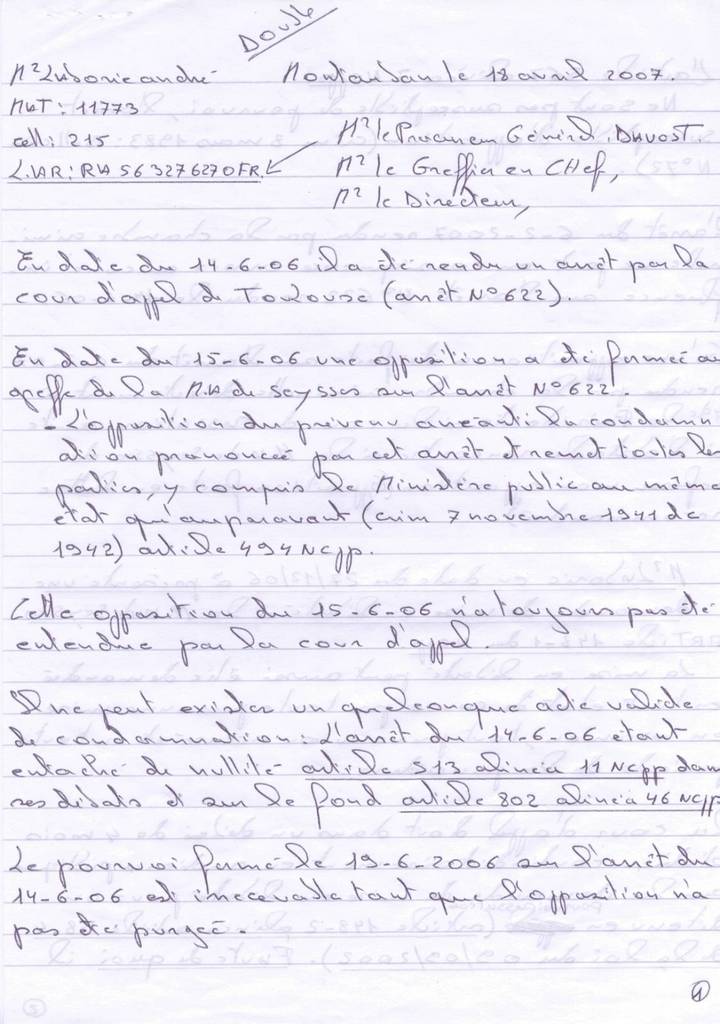 Double
Mr Laborie andré Montauban le 18 avril 2007.
MAT: 11773
cell: 215
L.AR: RA 56 3276270FR.
Mr le Procureur Général. DAVOST.
Mr le Greffier en CHef,
Mr le Directeur,
En date du 14-6-06 il a été rendu un arrêt par la
cour d'appel de Toulouse (arrêt N° 622).
En date du 15-6-06 une opposition a été formée au
greffe de la M.A de seysses sur l'arrêt N° 622.
- L'opposition du prévenu anéanti la condamn
ation prononcée par cet arrêt et remet toutes les
parties, y compris le Ministère public au même
état qu'auparavant (crim 7 novembre 1941 dc
1942) article 494 Ncpp.
Cette opposition du 15-6-06 n'a toujours pas été
entendue par la cour d'appel.
Il ne peut exister un quelconque acte valide
de condamnation: L'arrêt du 14-6-06 etant
entaché de nullité article 513 alinéa 11 Ncpp dans
ses débats et sur le fond article 802 alinéa 46 Ncpp
Le pourvoi formé le 19-6-2006 sur l'arrêt du
14-6-06 est irrecevable tant que l'opposition n'a
pas été purgée.
1